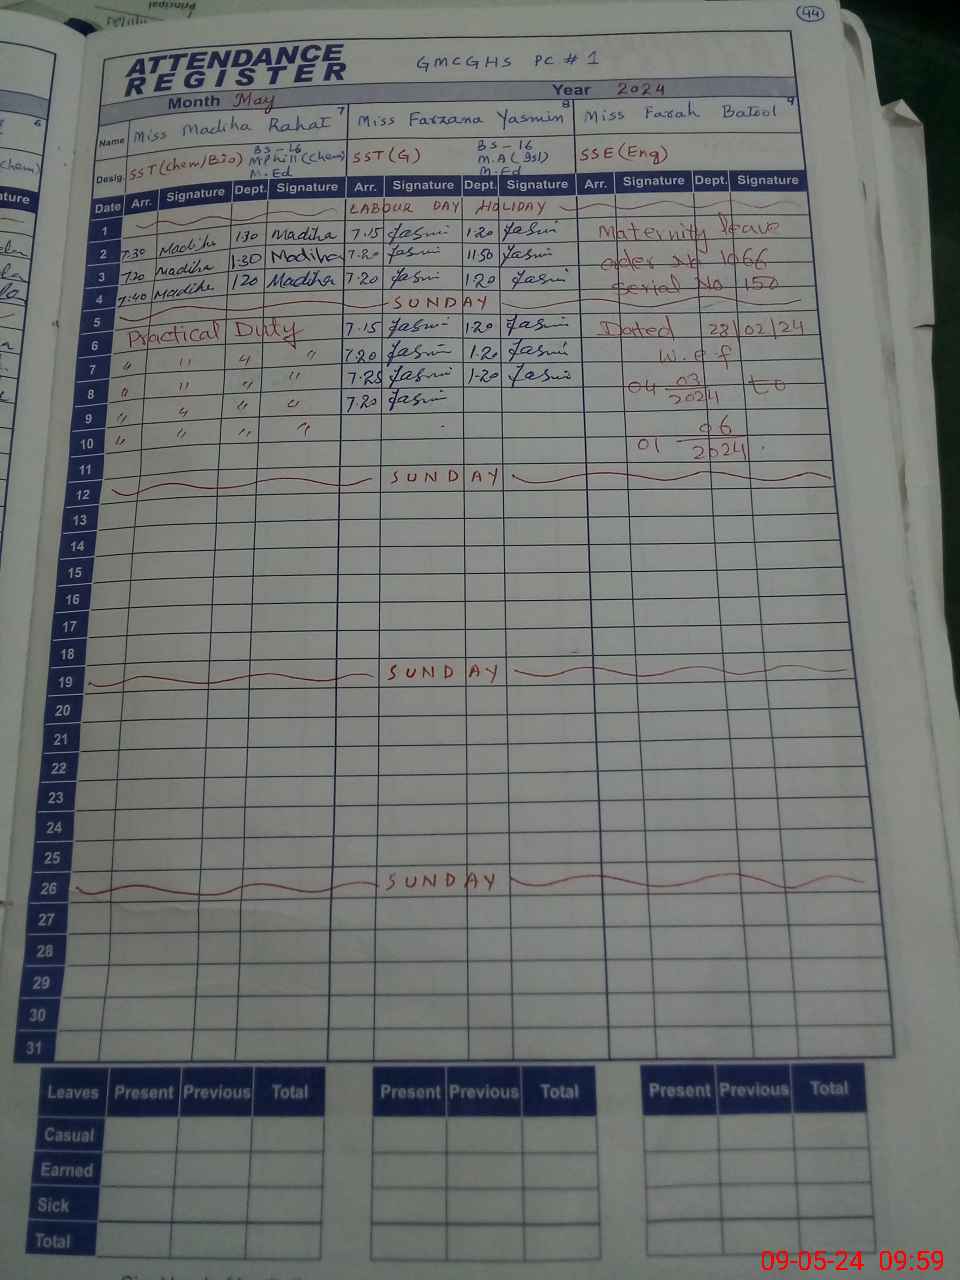 44
ATTENDANCE
REGISTER
GMCGHS PC # 1
Month May Year 2024
Name Miss Madiha Rahat 7 Miss Farzana Yasmin 8 Miss Farah Batool 9
Desig. SST (Chem/Bio) BS-16 M.Phill (Chem) M.Ed SST (G) BS-16 M.A (Isl) M.Ed SSE (Eng)
Date Arr. Signature Dept. Signature Arr. Signature Dept. Signature Arr. Signature Dept. Signature
1 LABOUR DAY HOLIDAY
2 7:30 Madiha 1:30 Madiha 7.15 Yasmin 1.20 Yasmin Maternity leave
3 7:20 Madiha 1:30 Madiha 7.20 Yasmin 11.50 Yasmin order No 1066
4 7:40 Madiha 1:20 Madiha 7.20 Yasmin 1.20 Yasmin Serial No 150
5 SUNDAY
6 Practical Duty 7.15 Yasmin 1.20 Yasmin Dated 22/02/24
7 " " " " 7.20 Yasmin 1.20 Yasmin w.e.f
8 " " " " 7.25 Yasmin 1.20 Yasmin 04 03 2024 to
9 " " " " 7.20 Yasmin
10 " " " " 01 06 2024.
11
12 SUNDAY
13
14
15
16
17
18
19 SUNDAY
20
21
22
23
24
25
26 SUNDAY
27
28
29
30
31
Leaves Present Previous Total Present Previous Total Present Previous Total
Casual
Earned
Sick
Total
09-05-24 09:59